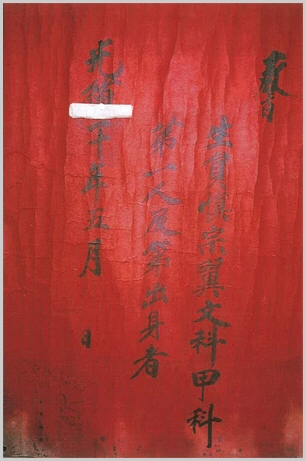 敎旨
生員愼宗翼文科甲科
第一人及第出身者
光緖十年五月 日